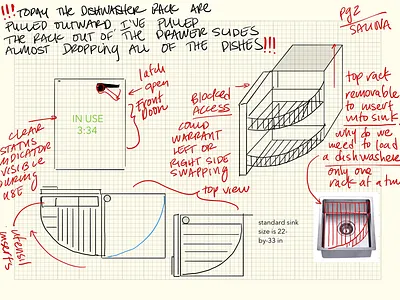 !!! TODAY THE DISHWASHER RACK ARE
PULLED OUTWARD I'VE PULLED
THE RACK OUT OF THE DRAWER SLIDES
ALMOST DROPPING ALL OF THE DISHES!!!
pg2
SALINA
latch
open
Front
Door
IN USE
3:34
CLEAR
STATUS
INDICATOR
VISIBLE
DURING
USE
Blocked
ACCESS
COULD
WARRANT
LEFT OR
RIGHT SIDE
SWAPPING
top rack
removable
to insert
into sink
why do we
need to load
a dishwasher
only one
rack at a tim
top view
utensil
inserts
standard sink
size is 22-
by-33 in